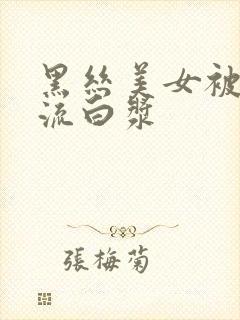 黑絲美女被
流白漿
張梅菊